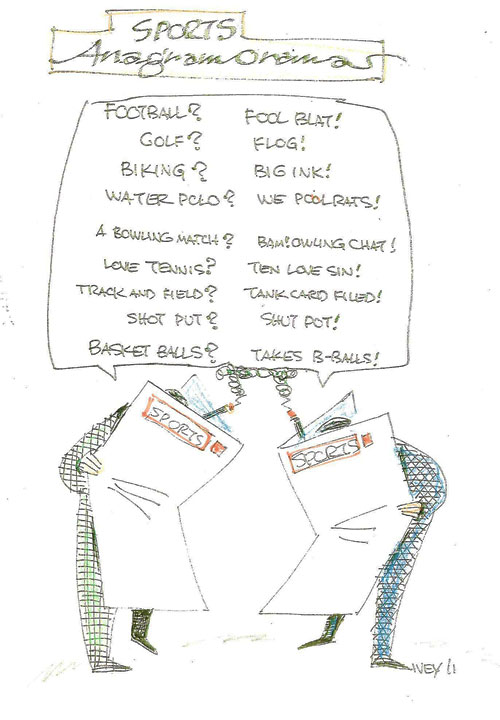 SPORTS
Anagramorama
FOOTBALL? FOOL BLAT!
GOLF? FLOG!
BIKING? BIG INK!
WATER POLO? WE POOLRATS!
A BOWLING MATCH? BAM! OWLING CHAT!
LOVE TENNIS? TEN LOVE SIN!
TRACK AND FIELD? TANKCARD FILED!
SHOT PUT? SHUT POT!
BASKET BALLS? TAKES B-BALLS!
SPORTS
SPORTS
IVEY 11